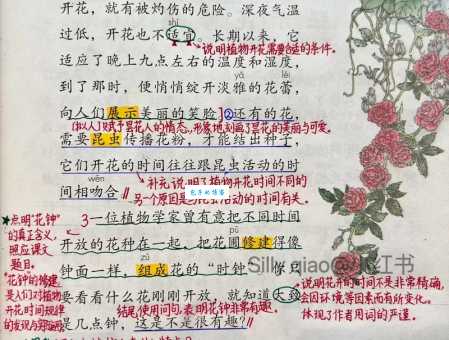 开花，就有被灼伤的危险。深夜气温
shì
过低，开花也不适宜。长期以来，它
说明植物开花需要合适的条件。
适应了晚上九点左右的温度和湿度，
yǎ lěi
到了那时，便悄悄绽开淡雅的花蕾，
向人们展示美丽的笑脸]②还有的花，
[拟人]赋予昙花人的情态，形象地刻画了昙花的美丽与可爱。
需要昆虫传播花粉，才能结出种子，
它们开花的时间往往跟昆虫活动的时
wěn
间相吻合∥
补充说明了植物开花时间不同的
另一个原因是 昆虫活动的时间有关。
3一位植物学家曾有意把不同时间
★点明“花钟”
的真正含义，
照应课文
题目。
开放的花种在一起，把花圃修建得像
zǔ
钟面一样，组成花的“时钟”
Silly qiao@
红书
“花钟”的修建
是人们对植物
开花时间规律
的发现与
要看看什么花刚刚开放，就知道大致
是几点钟，这是不是很有趣？∥
结尾使用问句，表明花钟非常有趣。
说明花开的时间不是非常精确，
会因环境等因素而有所变化。
体现了作者用词的严谨。